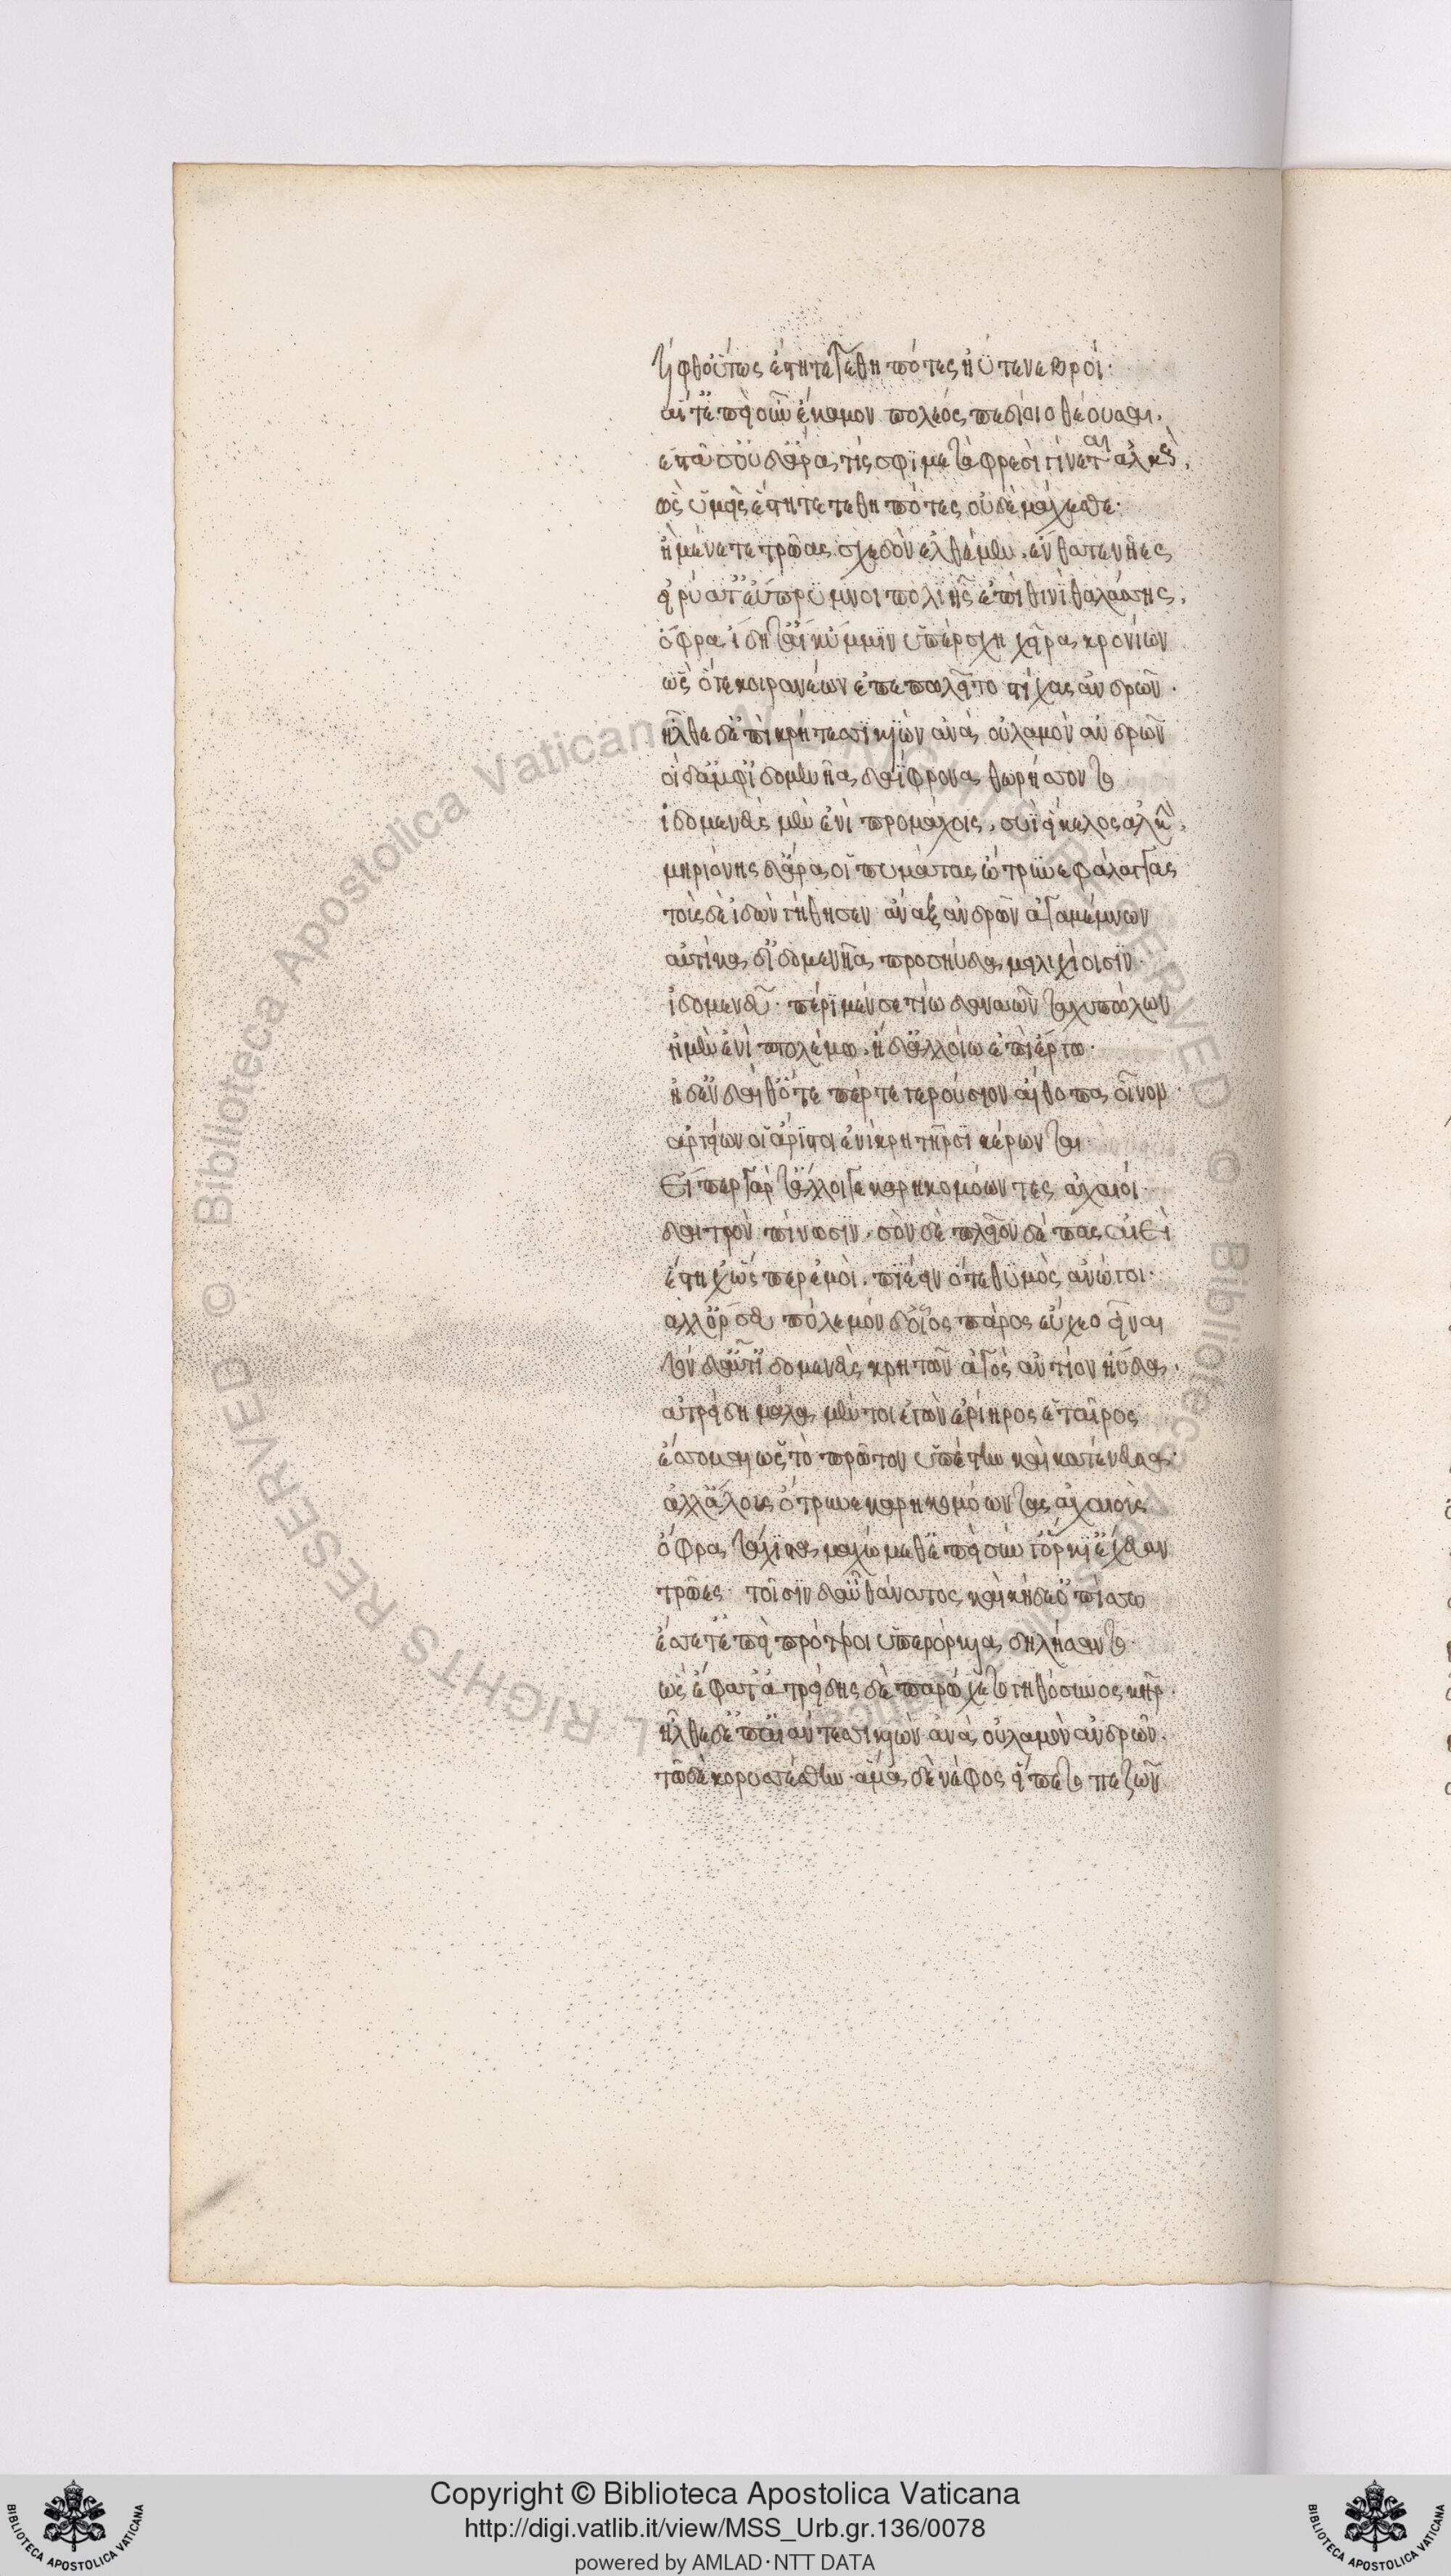 τίφθ' οὕτως ἔστητε τεθηπότες ἠΰτε νεβροί·
αἵτ' ἐπεὶ οὖν ἔκαμον πολέος πεδίοιο θέουσαι,
ἑστᾶσ' οὐδ' ἄρα τίς σφι μετὰ φρεσὶ γίνεται ἀλκή,
ὣς ὑμεῖς ἔστητε τεθηπότες οὐδὲ μάχεσθε·
ἦ μένετε τρῶας σχεδὸν ἐλθέμεν, ἔνθατε νῆες
εἰρύατ' εὔπρυμνοι πολιῆς ἐπὶ θινὶ θαλάσσης,
ὄφρα ἴδητ' αἴ κ' ὔμμιν ὑπέρσχη χεῖρα κρονίων
ὣς ὅγε κοιρανέων ἐπεπωλεῖτο στίχας ἀνδρῶν·
ἦλθε δ' ἐπὶ κρήτεσσι κιὼν ἀνὰ οὐλαμὸν ἀνδρῶν
οἱ δ' ἀμφ' ἰδομενῆα δαΐφρονα θωρήσσοντο
ἰδομενεὺς μὲν ἐνὶ προμάχοις, συῒ εἴκελος ἀλκὴν,
μηριόνης δ' ἄρα οἱ πυμάτας ὤτρυνε φάλαγγας
τοὺς δὲ ἰδὼν γήθησεν ἄναξ ἀνδρῶν ἀγαμέμνων
αὐτίκα δ' ἰδομενῆα προσηύδα μειλιχίοισιν·
ἰδομενεῦ· πέρι μέν σε τίω δαναῶν ταχυπώλων
ἠμὲν ἐνὶ πτολέμω, ἠδ' ἀλλοίω ἐπὶ ἔργω·
ἠδ' ἐν δαίθ' ὅτε πέρ τε γερούσιον αἴθοπα οἶνον·
ἀργείων οἱ ἄριστοι ἐνὶ κρητῆρσι κέρωνται·
Εἴπερ γάρ τ' ἄλλοι γε καρηκομόωντες ἀχαιοί·
δαιτρὸν πίνωσιν, σὸν δὲ πλεῖον δέπας αἰεὶ
ἕστηχ' ὥς περ ἐμοὶ, πιέειν ὅτε θυμὸς ἀνώγοι·
ἀλλ' ὄρσευ πόλεμον δ' οἷος πάρος εὔχεο εἶναι
τὸν δ' αὖτ' ἰδομενεὺς κρητῶν ἀγὸς ἀντίον ηὔδα·
ἀτρείδη μάλα μέν τοι ἐγὼν ἐρίηρος ἑταῖρος
ἔσσομαι ὡς τὸ πρῶτον ὑπέστην καὶ κατένευσα·
ἀλλ' ἄλλους ὄτρυνε καρηκομόωντας ἀχαιοὺς
ὄφρα τάχιστα μαχώμεθ' ἐπεὶ σύν γ' ὅρκι' ἔχευαν
τρῶες· τοῖσιν δ' αὖ θάνατος καὶ κήδε' ὀπίσσω
ἔσσετ' ἐπεὶ πρότεροι ὑπὲρ ὅρκια δηλήσαντο·
ὣς ἔφατ' ἀτρείδης δὲ παρώχετο γηθόσυνος κῆρ·
ἦλθε δ' ἐπ' αἰάντεσσι κιὼν ἀνὰ οὐλαμὸν ἀνδρῶν.
τὼ δὲ κορυσσέσθην· ἅμα δὲ νέφος εἵπετο πεζῶν
Copyright © Biblioteca Apostolica Vaticana
http://digi.vatlib.it/view/MSS_Urb.gr.136/0078
powered by AMLAD·NTT DATA